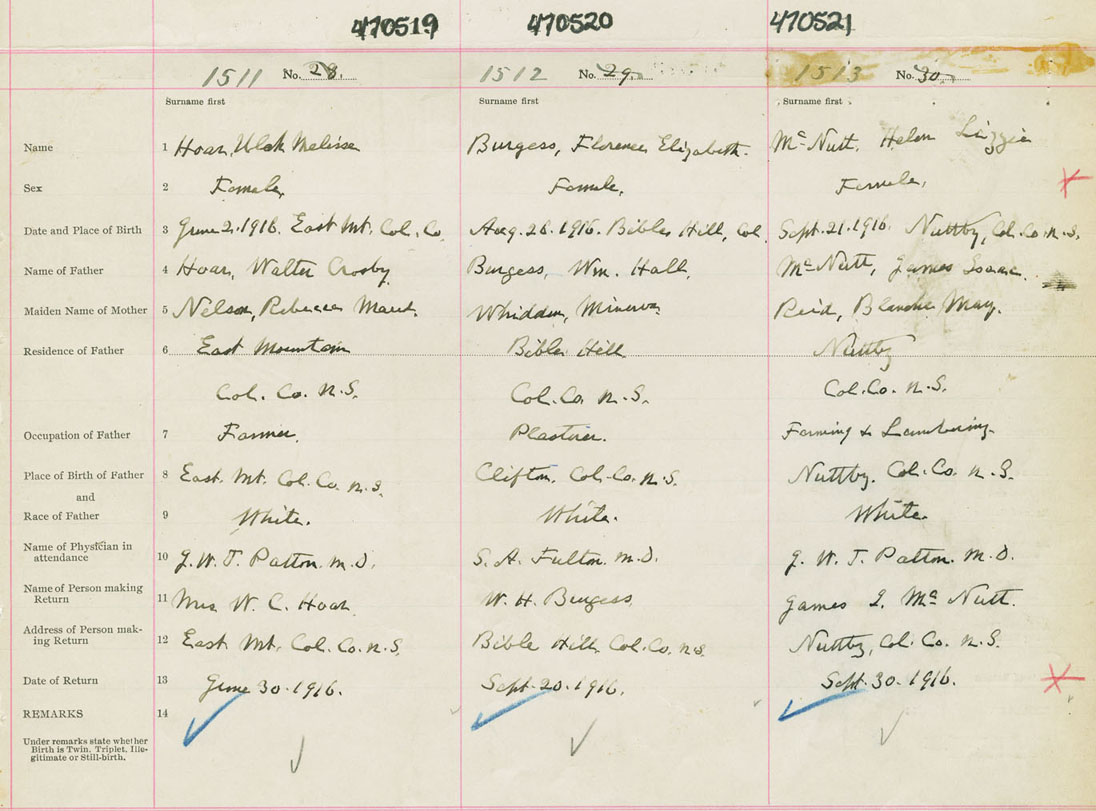 470519 470520 470521
1511 No. 28. 1512 No. 29. 1513 No. 30.
Surname first Surname first Surname first
Name 1 Hoar, Melissa Burgess, Florence Elizabeth. McNutt, Helen Lizzie
Sex 2 Female. Female. Female.
Date and Place of Birth 3 June 2. 1916. East Mt. Col. Co. Aug. 28. 1916. Bible Hill, Col. Sept. 21. 1916. Nuttby, Col. Co. N.S.
Name of Father 4 Hoar, Walter Crosby. Burgess, Wm. Hall. McNutt, James Isaac.
Maiden Name of Mother 5 Nelson, Rebecca Maud. Whidden, Minerva Reid, Blanche May.
Residence of Father 6 East Mountain Bible Hill Nuttby
Col. Co. N.S. Col. Co. N.S. Col. Co. N.S.
Occupation of Father 7 Farmer. Plasterer. Farming & Lumbering.
Place of Birth of Father 8 East. Mt. Col. Co. N.S. Clifton, Col. Co. N.S. Nuttby. Col. Co. N.S.
and
Race of Father 9 White. White. White.
Name of Physician in
attendance 10 J. W. T. Patton. M.D. S. A. Fulton. M.D. J. W. T. Patton. M.D.
Name of Person making
Return 11 Mrs W. C. Hoar. W. H. Burgess. James I. McNutt.
Address of Person mak-
ing Return 12 East Mt. Col. Co. N.S. Bible Hill. Col. Co. N.S. Nuttby, Col. Co. N.S.
Date of Return 13 June 30. 1916. Sept. 20. 1916. Sept. 30. 1916.
REMARKS 14
Under remarks state whether
Birth is Twin, Triplet, Ille-
gitimate or Still-birth.